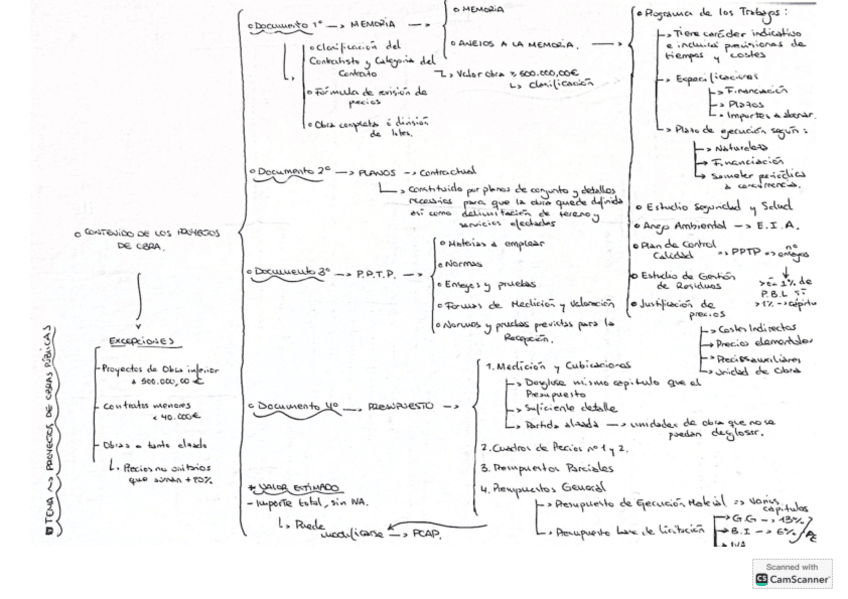 TEMA ~> PROYECTOS DE OBRAS PÚBLICAS
o CONTENIDO DE LOS PROYECTOS
DE OBRA.
EXCEPCIONES
- Proyectos de Obra inferior
a 500.000,00 €
- Contratos menores
< 40.000€
- Obras a tanto alzado
Precios no unitarios
que suman +
o Documento 1º -> MEMORIA ->
o Clasificación del
Contratista y Categoria del
Contrato
o Fórmula de revisión de
precios
o Obra completa ó división
de lotes.
o MEMORIA
o ANEJOS A LA MEMORIA. ->
Valor obra ≥ 500.000,00€
Clasificación
o Programa de los Trabajos:
Tiene carácter indicativo
e incluirá previsiones de
tiempos y costes
Especificaciones
Financiación
Plazos
Importes a abonar.
Plazo de ejecución según:
Naturaleza
Financiación
Someter periódica
a concurrencia.
o Estudio Seguridad y Salud
o Anejo Ambiental -> E.I.A.
o Plan de Control
Calidad -> PPTP -> nº
ensayos
o Estudio de Gestión
de Residuos
1% de
P.B.L
>1% ->
o Justificación de
precios
Costes Indirectos
Precios elementales
Precios auxiliares
Unidad de Obra
o Documento 2º -> PLANOS -> Contractual
Constituido por planos de conjunto y detalles
necesarios para que la obra quede definida
así como delimitación de terreno y
servicios afectados
o Documento 3º -> P.P.T.P. ->
o Materias a emplear
o Normas
o Ensayos y pruebas
o Formas de Medición y Valoración
o Normas y pruebas previstas para la
Recepción.
o Documento 4º -> PRESUPUESTO ->
1. Medición y Cubicaciones
Desglose mismo capitulo que el
Presupuesto
Suficiente detalle
Partida alzada -> unidades de obra que no se
puedan desglosar.
2. Cuadros de Precios nº 1 y 2.
3. Presupuestos Parciales
4. Presupuestos General
Presupuesto de Ejecución Material -> Varios
capítulos
Presupuesto base de licitación
G.G -> 13%
B.I -> 6%
IVA
* VALOR ESTIMADO
- Importe total, sin IVA.
Puede
modificarse -> PCAP.
Scanned with
CS CamScanner